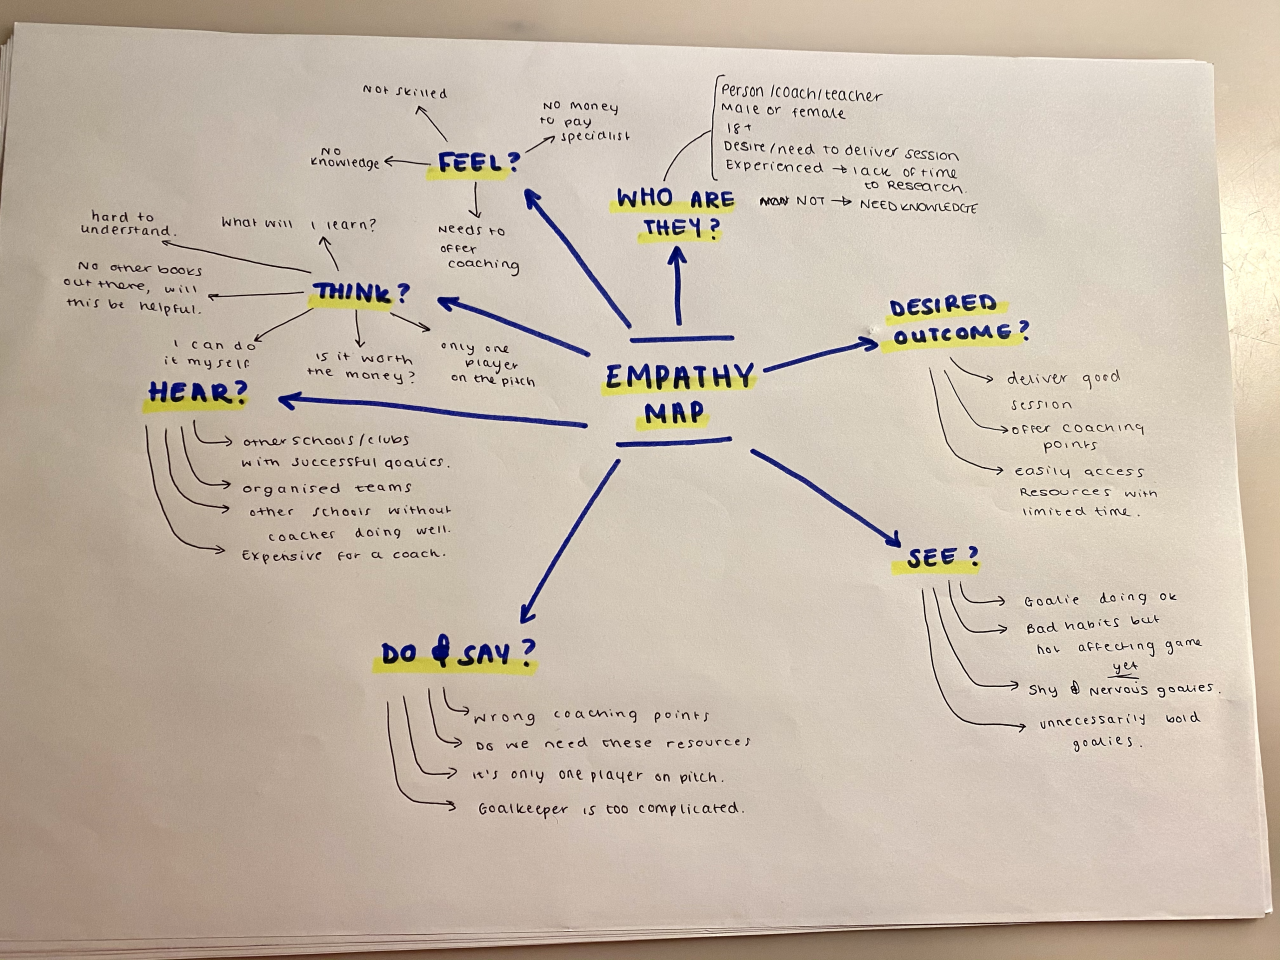 EMPATHY
MAP
WHO ARE
THEY?
Person /coach/teacher
Male or female
18+
Desire/need to deliver session
Experienced → lack of time
to Research.
NOT → NEED KNOWLEDGE
FEEL?
Not skilled
No money
to pay
specialist
No
knowledge
Needs to
offer
coaching
THINK?
hard to
understand.
What will I learn?
No other books
out there, will
this be helpful.
I can do
it myself
Is it worth
the money?
only one
player
on the pitch
HEAR?
other schools/clubs
with successful goalies.
organised teams
other schools without
coaches doing well.
Expensive for a coach.
DO & SAY?
Wrong coaching points
Do we need these resources
it's only one player on pitch.
Goalkeeper is too complicated.
DESIRED
OUTCOME?
deliver good
session
offer coaching
points
easily access
Resources with
limited time.
SEE?
Goalie doing ok
Bad habits but
not affecting game
yet
Shy & Nervous goalies.
unnecessarily bold
goalies.